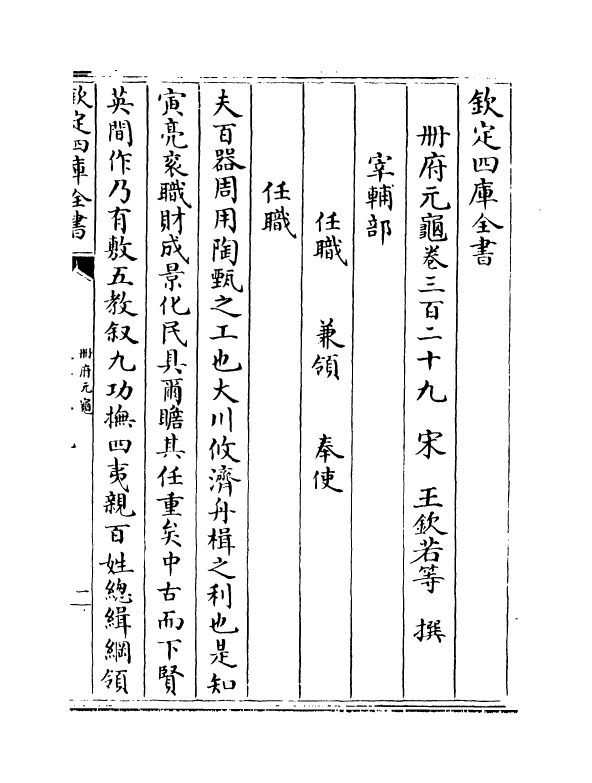 欽定四庫全書
冊府元龜卷三百二十九　宋　王欽若等　撰
宰輔部
任職　兼領　奉使
任職
夫百器周用陶甄之工也大川攸濟舟楫之利也是知
寅亮衮職財成景化民具爾瞻其任重矣中古而下賢
英間作乃有敷五教叙九功撫四夷親百姓總緝綱領
欽定四庫全書
冊府元龜